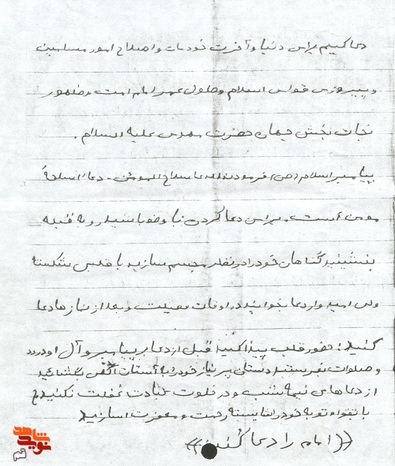 دعا کنیم برای دنیا و آخرت خودمان و اصلاح امور مسلمین
و پیروزی قوای اسلام و طول عمر امام امت و ظهور
نجات بخش جهان حضرت مهدی علیه السلام .
پیامبر اسلام (ص) فرمودند الدعا سلاح المومن - دعا اسلحهٔ
مومن است . برای دعا کردن با وضو باشید رو به قبله
بنشینید گناهان خود را در نظر مجسم سازید با قلبی شکسته
ولی امیدوار دعا بخوانید در اوقات مصیبت و بعد از نمازها دعا
کنید ؛ حضور قلب پیدا کنید قبل از دعا بر پیامبر و آل او درود
و صلوات بفرستید دستانی پر نیاز خود را به آستان
از دعاهای نیمه شب و در خلوت عبادت غفلت نکنید و
با تقوا و توبه خود را شایسته رحمت و مغفرت سازید
((امام را دعا کنید))
شاهد
نوید